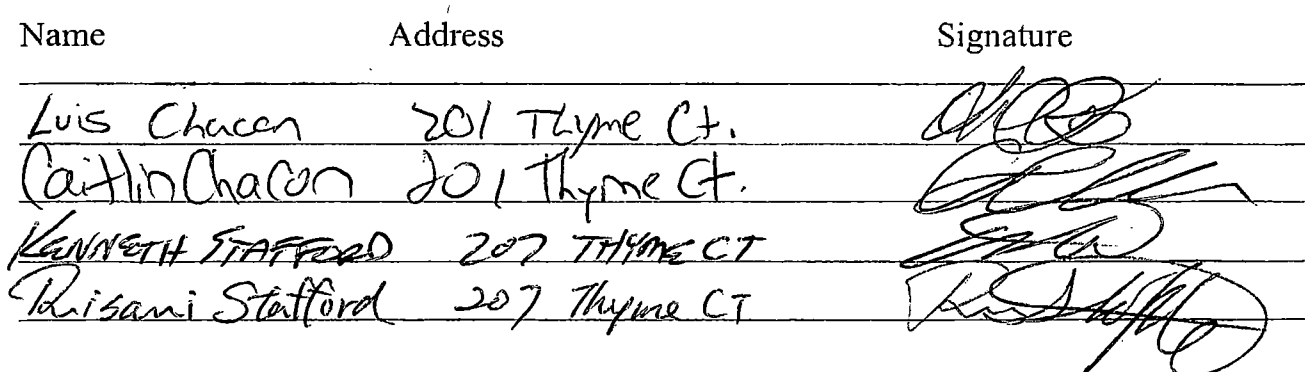 Name Address Signature
Luis Chacon 201 Thyme Ct.
Caitlin Chacon 201 Thyme Ct.
KENNETH STAFFORD 207 THYME CT
Stafford 207 Thyme CT